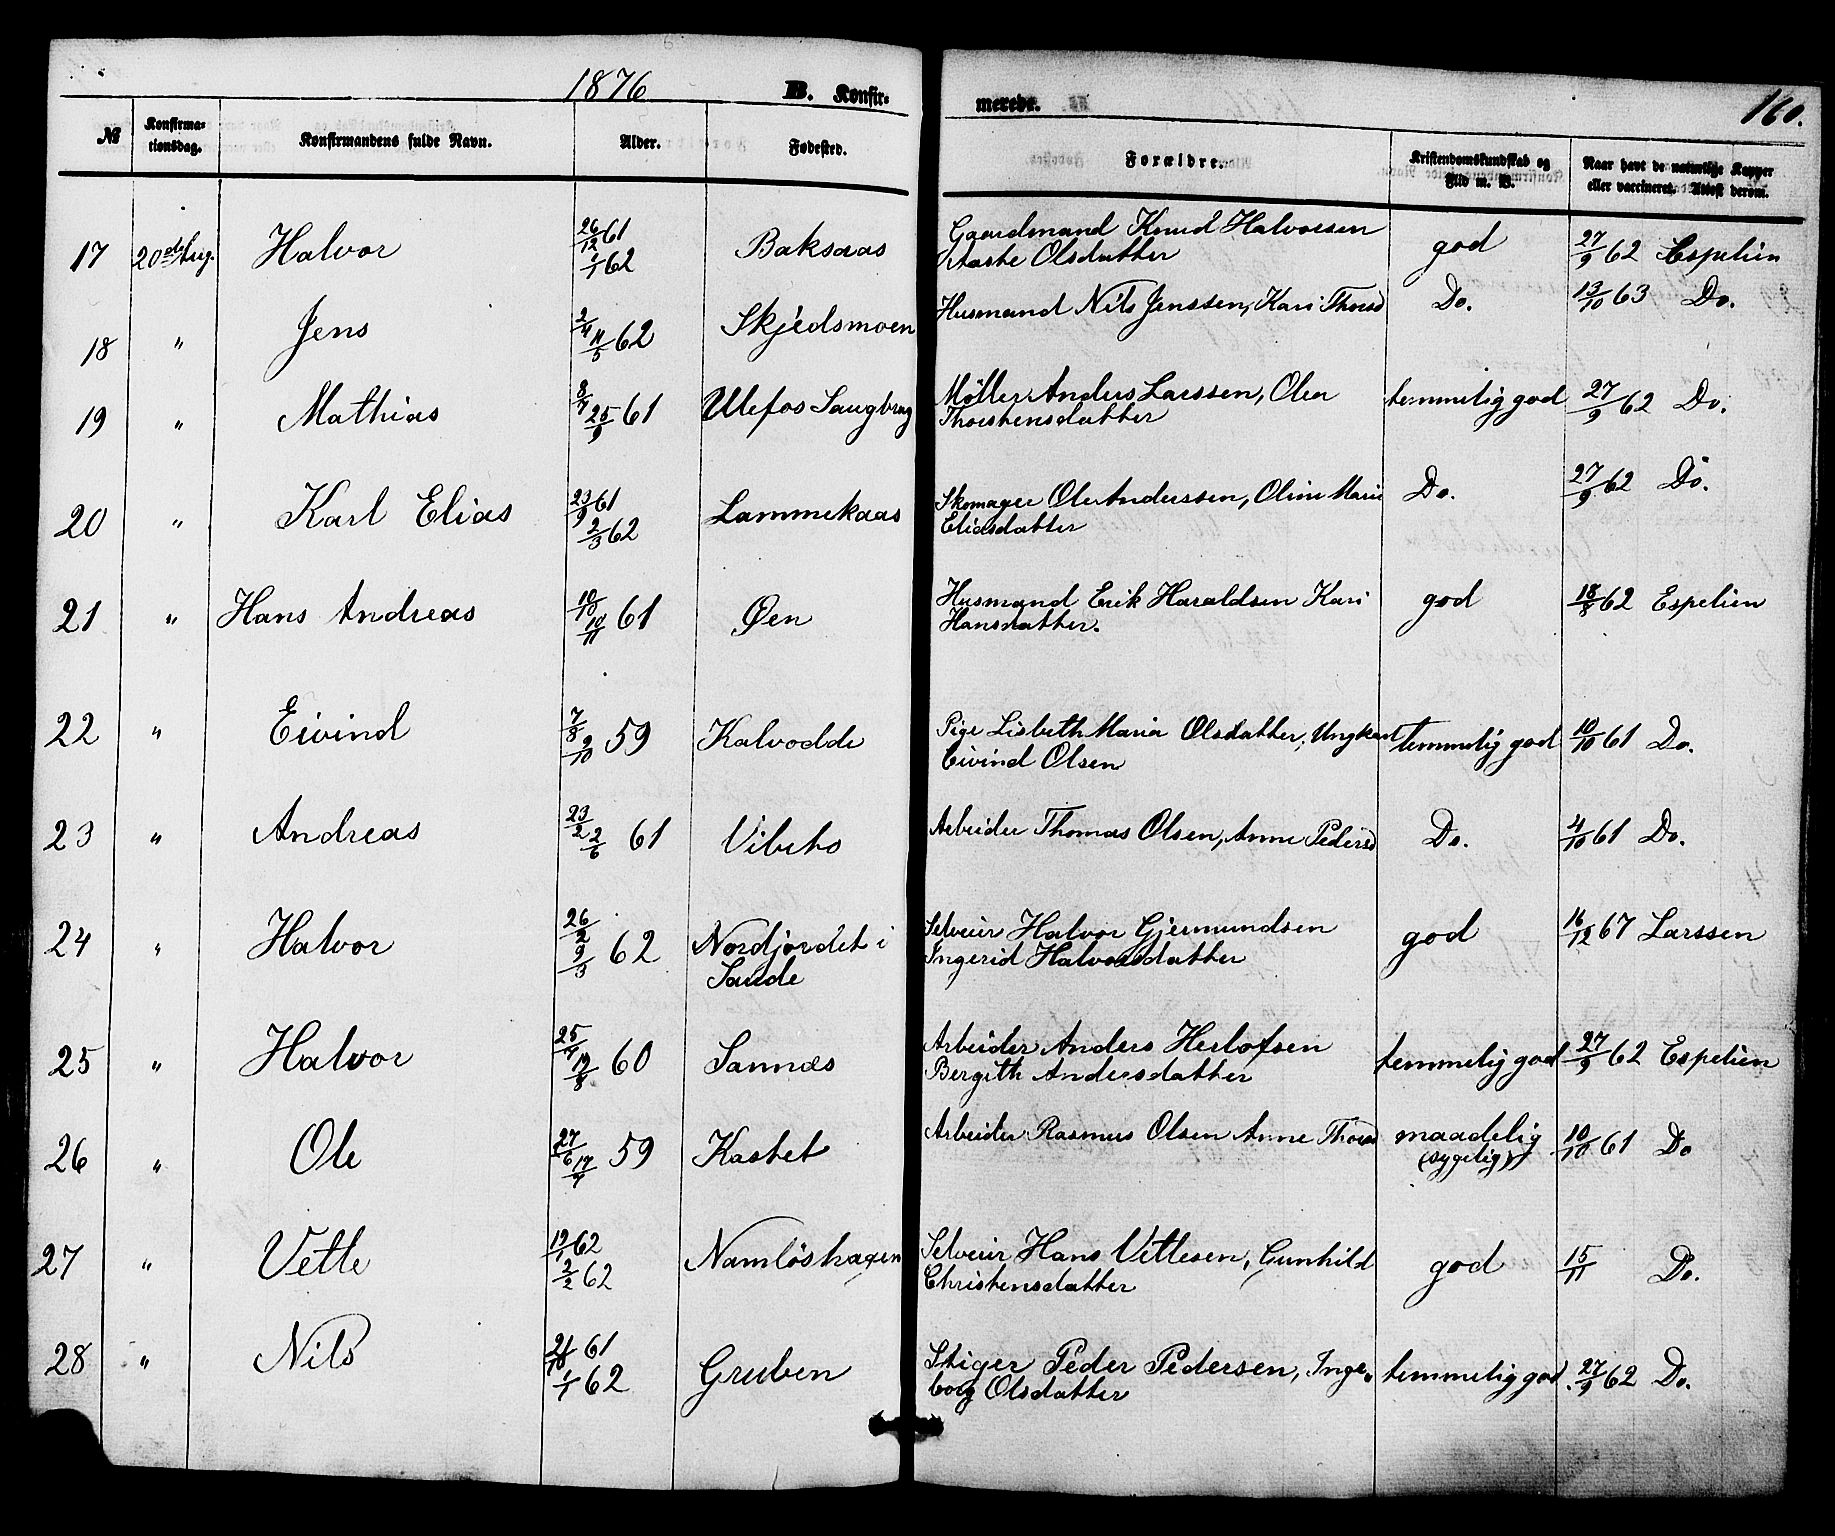 1876 B. Konfir- merede. 160.
№ Konfirma- tionsdag. Konfirmandens fulde Navn. Alder. Fødested. Forældre. Kristendomskundskab og Flid m. V. Naar havt de naturlige Kopper eller vaccineret. Attest derom.
17 20de Aug. Halvor 26/12 61 1/1 62 Baksaas Gaardmand Knud Halvorsen god 27/9 62 Espelien
Aaste Olsdatter
18 " Jens 2/4 11/5 62 Skjedsmoen Husmand Nils Jenssen, Kari Thorsd Do. 13/10 63 Do.
19 " Mathias 8/7 25/9 61 Ulefos Saugbrug Møller Anders Larssen, Olea temmelig god 27/9 62 Do.
Thorstensdatter
20 " Karl Elias 23/9 61 2/3 62 Lammekaas Skomager Ole Anderssen, Oline Marie Do. 27/9 62 Do.
Eliasdatter
21 " Hans Andreas 10/10 10/11 61 Øen Husmand Erik Haraldsen Kari god 18/8 62 Espelien
Hansdatter.
22 " Eivind 7/8 9/10 59 Kalvodde Pige Lisbeth Maria Olsdatter, Ungkarl temmelig god 10/10 61 Do.
Eivind Olsen
23 " Andreas 23/2 2/6 61 Vibeto Arbeider Thomas Olsen, Anne Pedersd Do. 4/10 61 Do.
24 " Halvor 26/2 9/3 62 Nordjordet i Selveier Halvor Gjermundsen god 16/12 67 Larssen
Saude Ingerid Halvorsdatter
25 " Halvor 25/4 19/8 60 Sannæs Arbeider Anders Herlofsen temmelig god 27/9 62 Espelien
Bergith Andersdatter
26 " Ole 27/6 17/7 59 Kastet Arbeider Rasmus Olsen Anne Thorsd maadelig 10/10 61 Do
(sygelig)
27 " Vetle 19/1 62 2/2 62 Namløshagen Selveier Hans Vetlesen, Gunhild god 15/11 Do.
Christensdatter
28 " Nils 21/10 61 1/1 62 Gruben Stiger Peder Pedersen, Inge- temmelig god 27/9 62 Do.
borg Olsdatter